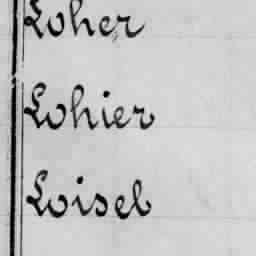 Loher
Lohier
Loisel